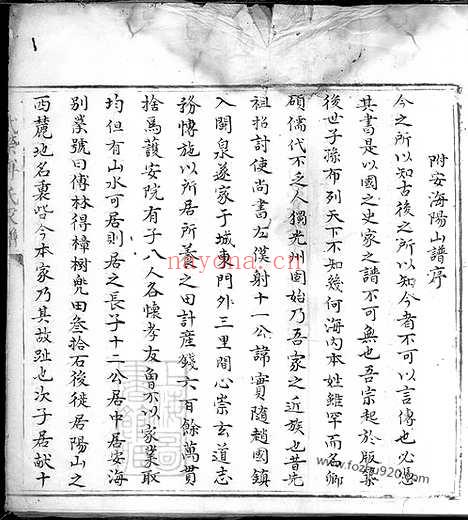 附安海陽山譜序
今之所以知古後之所以知今者不可以言傳也必憑
其書是以國之史家之譜不可無也吾宗起於版築
後世子孫布列天下不知幾何海内本姓雖罕而名卿
碩儒代不乏人獨光州固始乃吾家之近族也昔先
祖招討使尚書左僕射十一公諱實隨趙國鎮
入閩泉遂家于城東門外三里間心崇玄道志
務慱施以所居所養之田計産錢六百餘萬貫
捨為護安院有子八人各懷孝友魯不以家業取
均但有山水可居則居之長子十二公居中居安海
别業號曰傅林得樟樹兜田叁拾石後徙居陽山之
西麓地名裏呰今本家乃其故趾也次子居献十
www.fozupu920.com